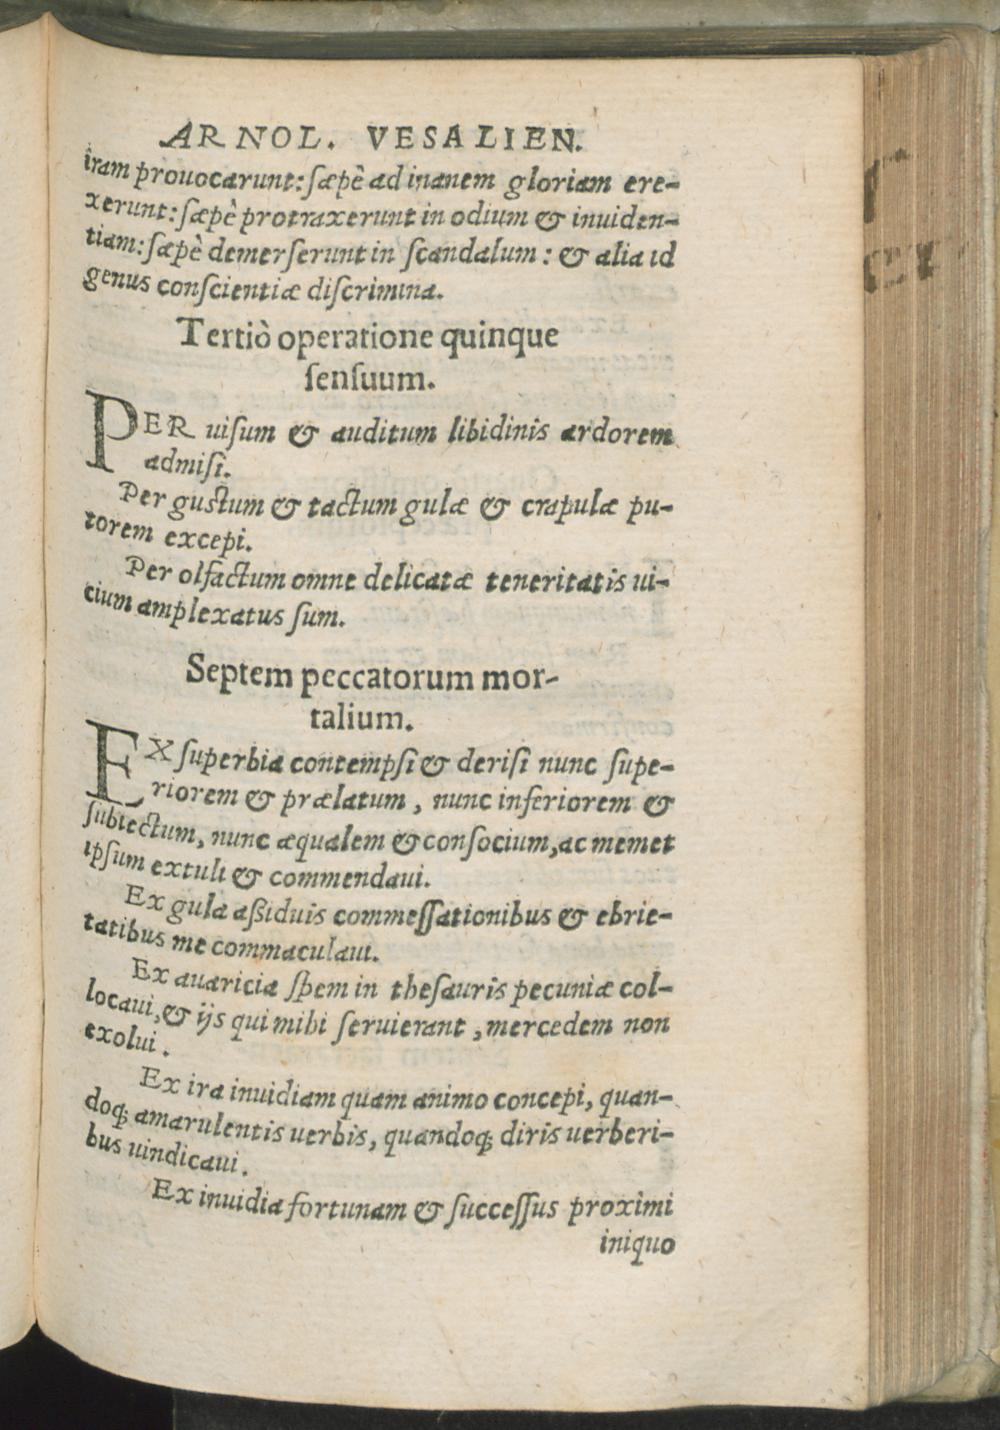 ARNOL. VESALIEN.
iram prouocarunt: ſæpè ad inanem gloriam ere-
xerunt: ſæpè protraxerunt in odium & inuiden-
tiam: ſæpè demerſerunt in ſcandalum: & alia id
genus conſcientiæ diſcrimina.
Tertiò operatione quinque
ſenſuum.
PER uiſum & auditum libidinis ardorem
admiſi.
Per guſtum & tactum gulæ & crapulæ pu-
torem excepi.
Per olfactum omne delicatæ teneritatis ui-
cium amplexatus ſum.
Septem peccatorum mor-
talium.
EX ſuperbia contempſi & deriſi nunc ſupe-
riorem & prælatum, nunc inferiorem &
ſubiectum, nunc æqualem & conſocium, ac memet
ipſum extuli & commendaui.
Ex gula aßiduis commeſſationibus & ebrie-
tatibus me commaculaui.
Ex auaricia ſpem in theſauris pecuniæ col-
locaui, & ijs qui mihi ſeruierant, mercedem non
exolui.
Ex ira inuidiam quam animo concepi, quan-
doq; amarulentis uerbis, quandoq; diris uerberi-
bus uindicaui.
Ex inuidia fortunam & ſucceſſus proximi
iniquo